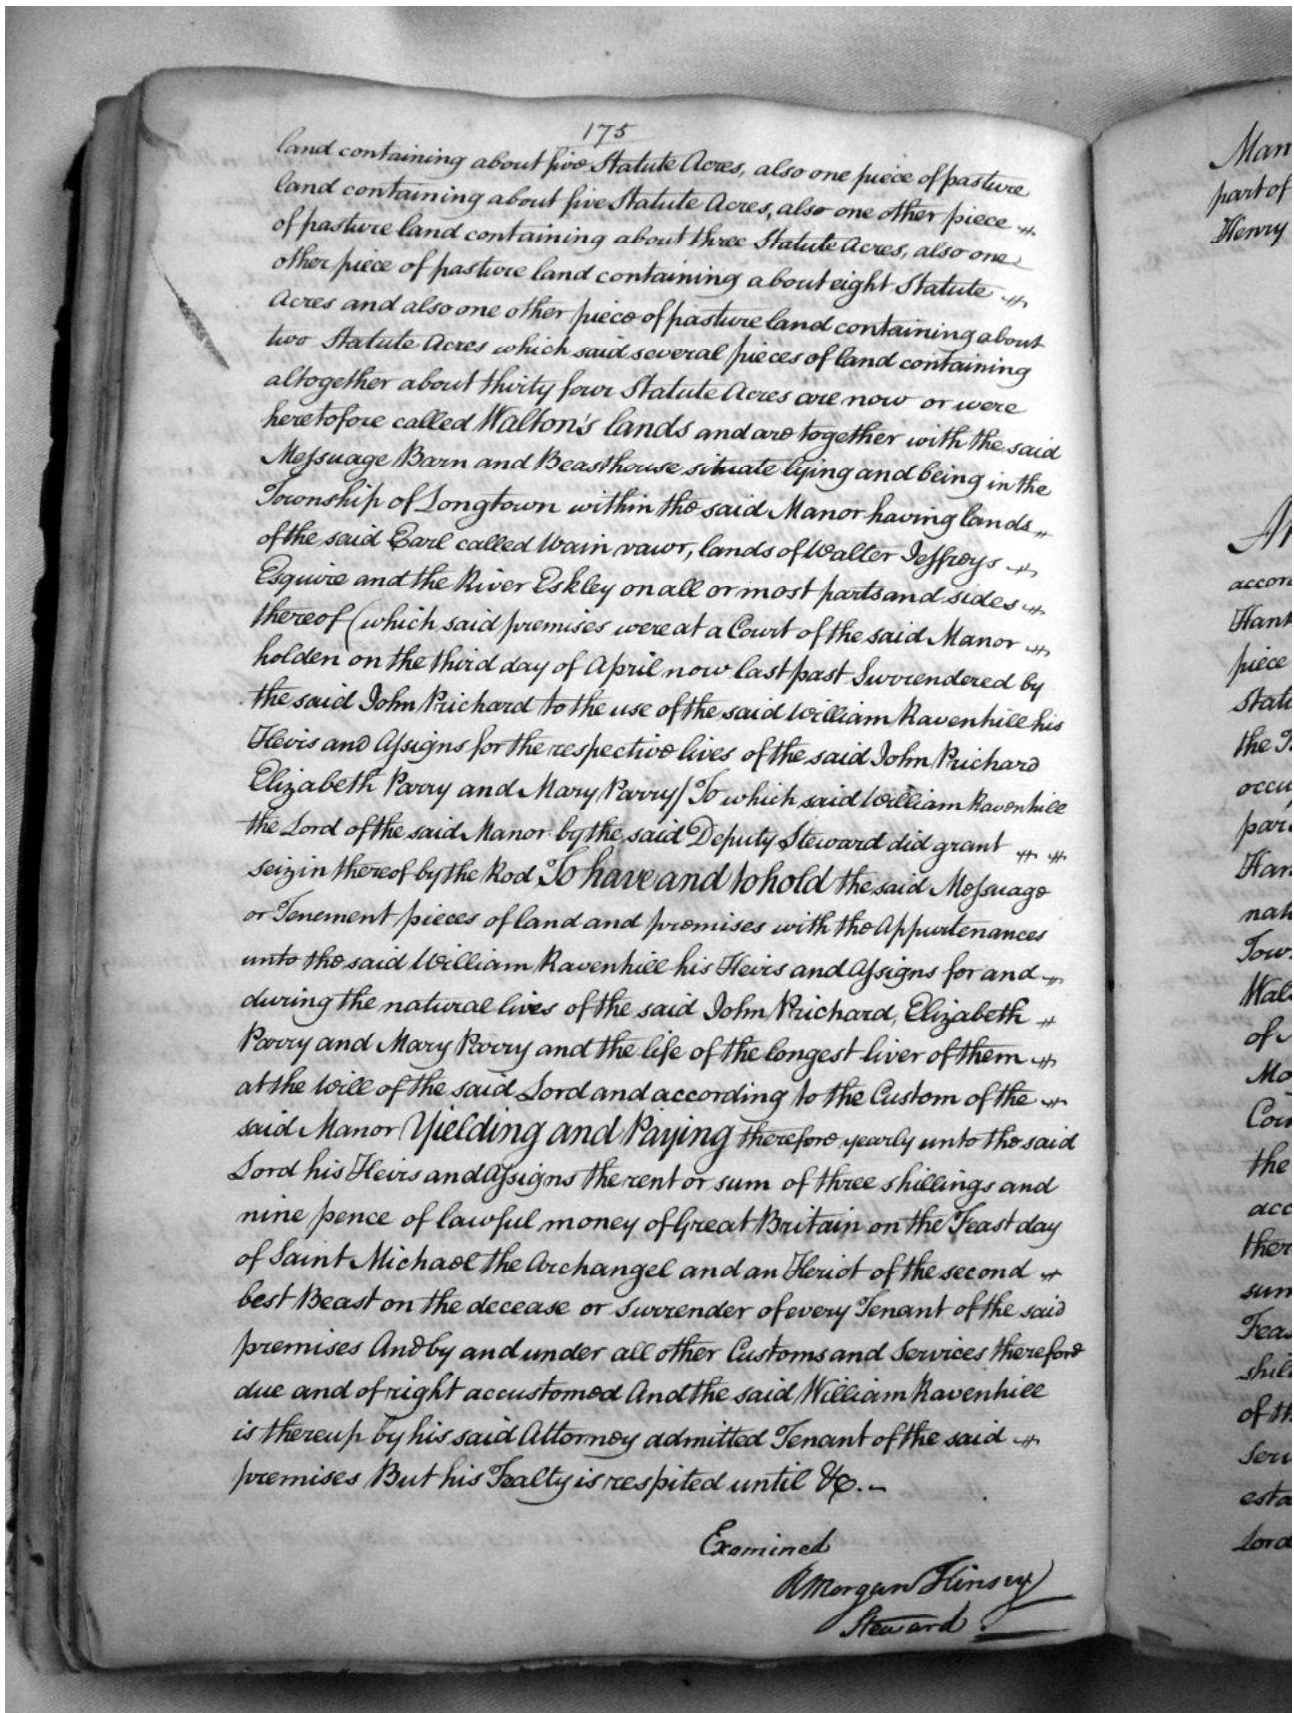 175
land containing about five Statute Acres, also one piece of pasture
land containing about five Statute Acres, also one other piece
of pasture land containing about three Statute Acres, also one
other piece of pasture land containing about eight Statute
Acres and also one other piece of pasture land containing about
two Statute Acres which said several pieces of land containing
altogether about thirty four Statute Acres are now or were
heretofore called Walton's lands and are together with the said
Messuage Barn and Beasthouse situate lying and being in the
Township of Longtown within the said Manor having lands
of the said Earl called Wain vawr, lands of Walter Jeffreys
Esquire and the River Eskley on all or most parts and sides
thereof (which said premises were at a Court of the said Manor
holden on the third day of April now last past Surrendered by
the said John Prichard to the use of the said William Ravenhill his
Heirs and Assigns for the respective lives of the said John Prichard
Elizabeth Parry and Mary Parry) To which said William Ravenhill
the Lord of the said Manor by the said Deputy Steward did grant
seizin thereof by the Rod To have and to hold the said Messuage
or Tenement pieces of land and premises with the Appurtenances
unto the said William Ravenhill his Heirs and Assigns for and
during the natural lives of the said John Prichard, Elizabeth
Parry and Mary Parry and the life of the longest liver of them
at the Will of the said Lord and according to the Custom of the
said Manor Yielding and Paying therefore yearly unto the said
Lord his Heirs and Assigns the rent or sum of three shillings and
nine pence of lawful money of Great Britain on the Feast day
of Saint Michael the Archangel and an Heriot of the second
best Beast on the decease or Surrender of every Tenant of the said
premises And by and under all other Customs and Services therefore
due and of right accustomed And the said William Ravenhill
is thereup by his said Attorney admitted Tenant of the said
premises But his Fealty is respited until &c.
Examined
R Morgan Kinsey
Steward
Man
part of
Henry
accor
Hant
piece
Statu
the T
occu
par
Han
nat
Tow
Wal
of
Mo
Cou
the
acc
ther
sum
Feas
shil
of th
Serv
esta
Lord